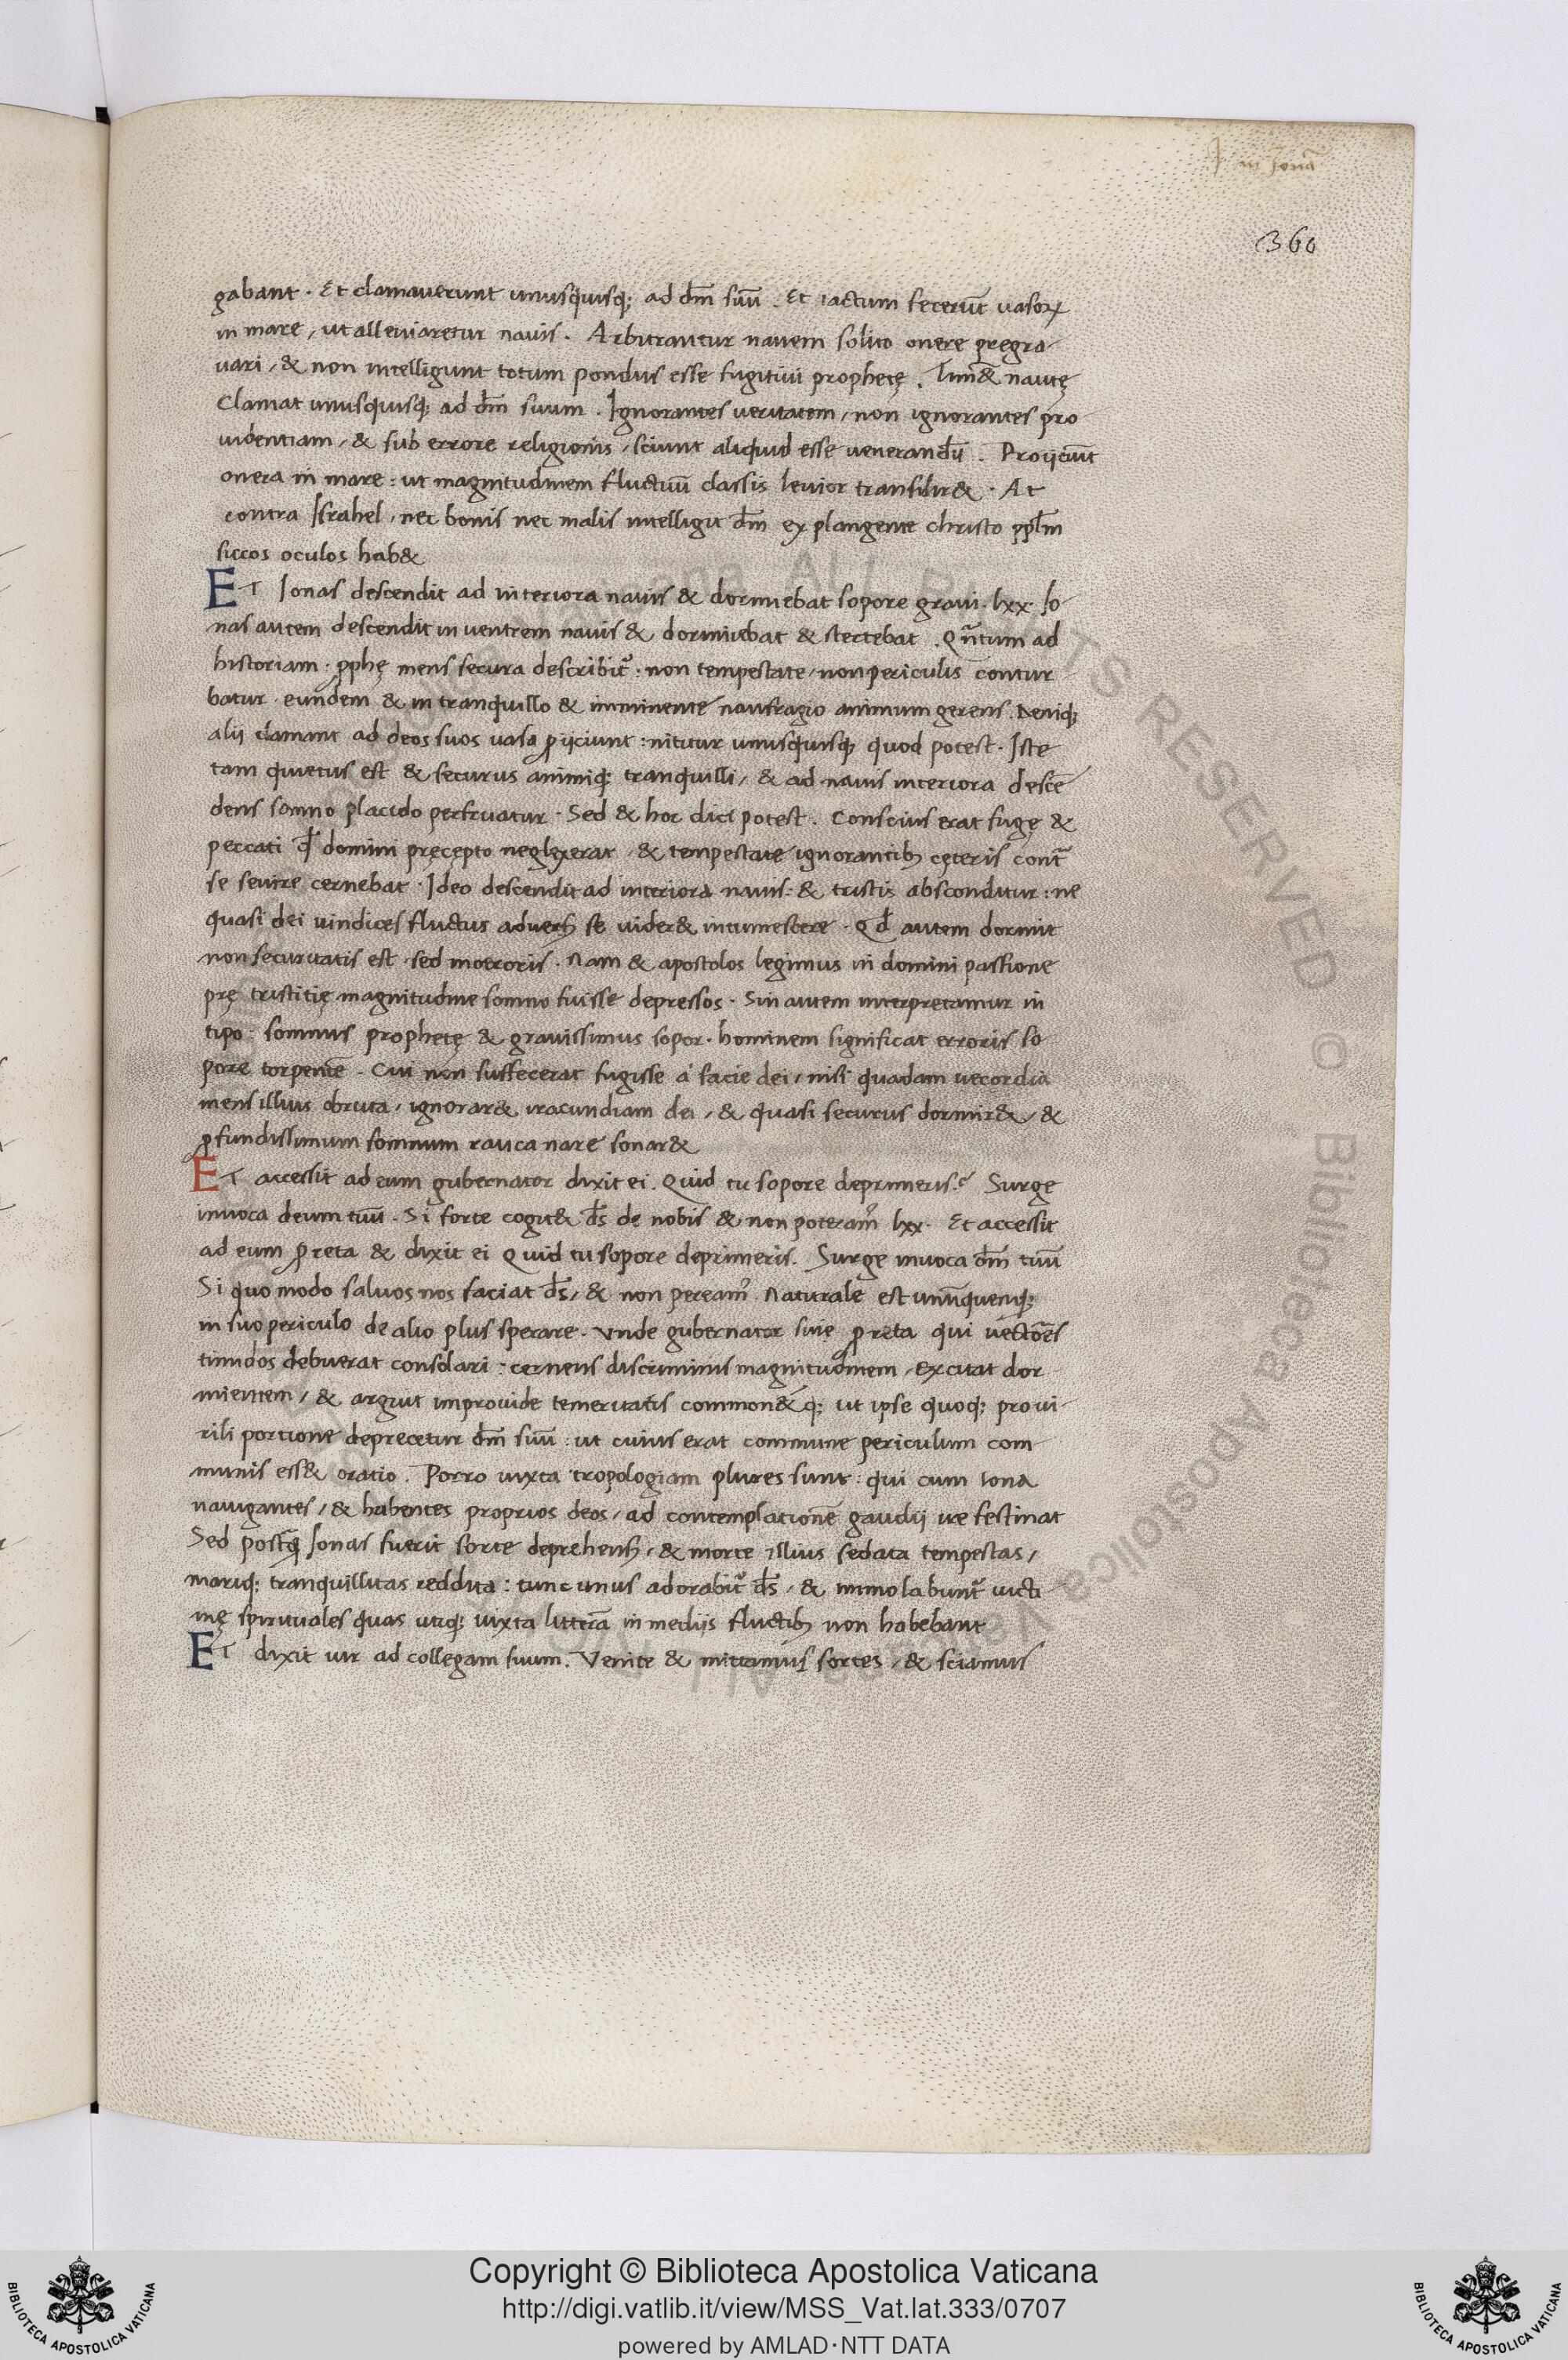 I in Ionā
360
gabant · Et clamauerunt unusquisq; ad dm̄ suū . Et iactum fecerūt uasoꝝ
in mare , ut alleuiaretur nauis . Arbitrantur nauem solito onere pregra
uari , & non intelligunt totum pondus esse fugitiui prophetę . Tim& nautę
Clamat unusquisq; ad dm̄ suum . Ignorantes ueritatem , non ignorantes pro
uidentiam , & sub errore religionis , sciunt aliquid esse uenerandū . Proijciūt
onera in mare : ut magnitudinem fluctuū classis leuior transilir& · At
contra Israhel , nec bonis nec malis intelligit dm̄ ex plangente christo pplm̄
siccos oculos hab&
ET Ionas descendit ad interiora nauis & dormiebat sopore graui . lxx . Io
nas autem descendit in uentrem nauis & dormiebat & stertebat . Qn̄tum ad
historiam · pphę mens secura describit᷑ : non tempestate , non periculis contur
batur · eundem & in tranquillo & imminente naufragio animum gerens . Deniq;
alij clamant ad deos suos uasa ꝓijciunt : nititur unusquisq; quod potest . Iste
tam quietus est & securus animiq; tranquilli , & ad nauis interiora descē
dens somno placido perfruatur · Sed & hoc dici potest . Conscius erat fugę &
peccati ꝙ domini pręcepto neglexerat , & tempestate ignorantib; cęteris cont᷑
se seuire cernebat · Ideo descendit ad interiora nauis : & tristis absconditur : ne
quasi dei uindices fluctus aduersꝫ se uider& intumescere . Qd̄ autem dormit
non securitatis est · sed moeroris . Nam & apostolos legimus in domini passione
prę tristitię magnitudine somno fuisse depressos · Sin autem interpretamur in
tipo : somnus prophetę & grauissimus sopor · hominem significat erroris so
pore torpentē . Cui non suffecerat fugisse a facie dei , nisi quadam uecordia
mens illius obruta , ignorar& iracundiam dei , & quasi securus dormir& , &
ꝓfundissimum somnum rauca nare sonar&
ET accessit ad eum gubernator dixit ei . Quid tu sopore deprimeris ? Surge
inuoca deum tuū . Si forte cogit& ds̄ de nobis & non poteram᷒ lxx . Et accessit
ad eum ꝓreta & dixit ei Quid tu sopore deprimeris . Surge inuoca dm̄ tuū
Si quo modo saluos nos faciat ds̄ , & non peream᷒ . Naturale est unūquenq;
in suo periculo de alio plus sperare . Vnde gubernator siue ꝓreta qui uectoēs
timidos debuerat consolari : cernens discriminis magnitudinem , excitat dor
mientem , & arguit improuide temeritatis common&q; ut ipse quoq; pro ui
rili portione deprecetur dm̄ suū : ut cuius erat commune periculum com
munis ess& oratio . Porro iuxta tropologiam plures sunt : qui cum iona
nauigantes , & habentes proprios deos , ad contemplationē gaudij ire festinat
Sed postꝙ̄ Ionas fuerit sorte deprehensꝫ , & morte illius sedata tempestas ,
mariq; tranquillitas reddita : tunc unus adorabit᷑ ds̄ , & immolabunt᷑ uicti
mę spirituales quas utiq; iuxta litterā in medijs fluctib; non habebant
ET dixit uir ad collegam suum . Venite & mittamus sortes , & sciamus
Copyright © Biblioteca Apostolica Vaticana
http://digi.vatlib.it/view/MSS_Vat.lat.333/0707
powered by AMLAD·NTT DATA